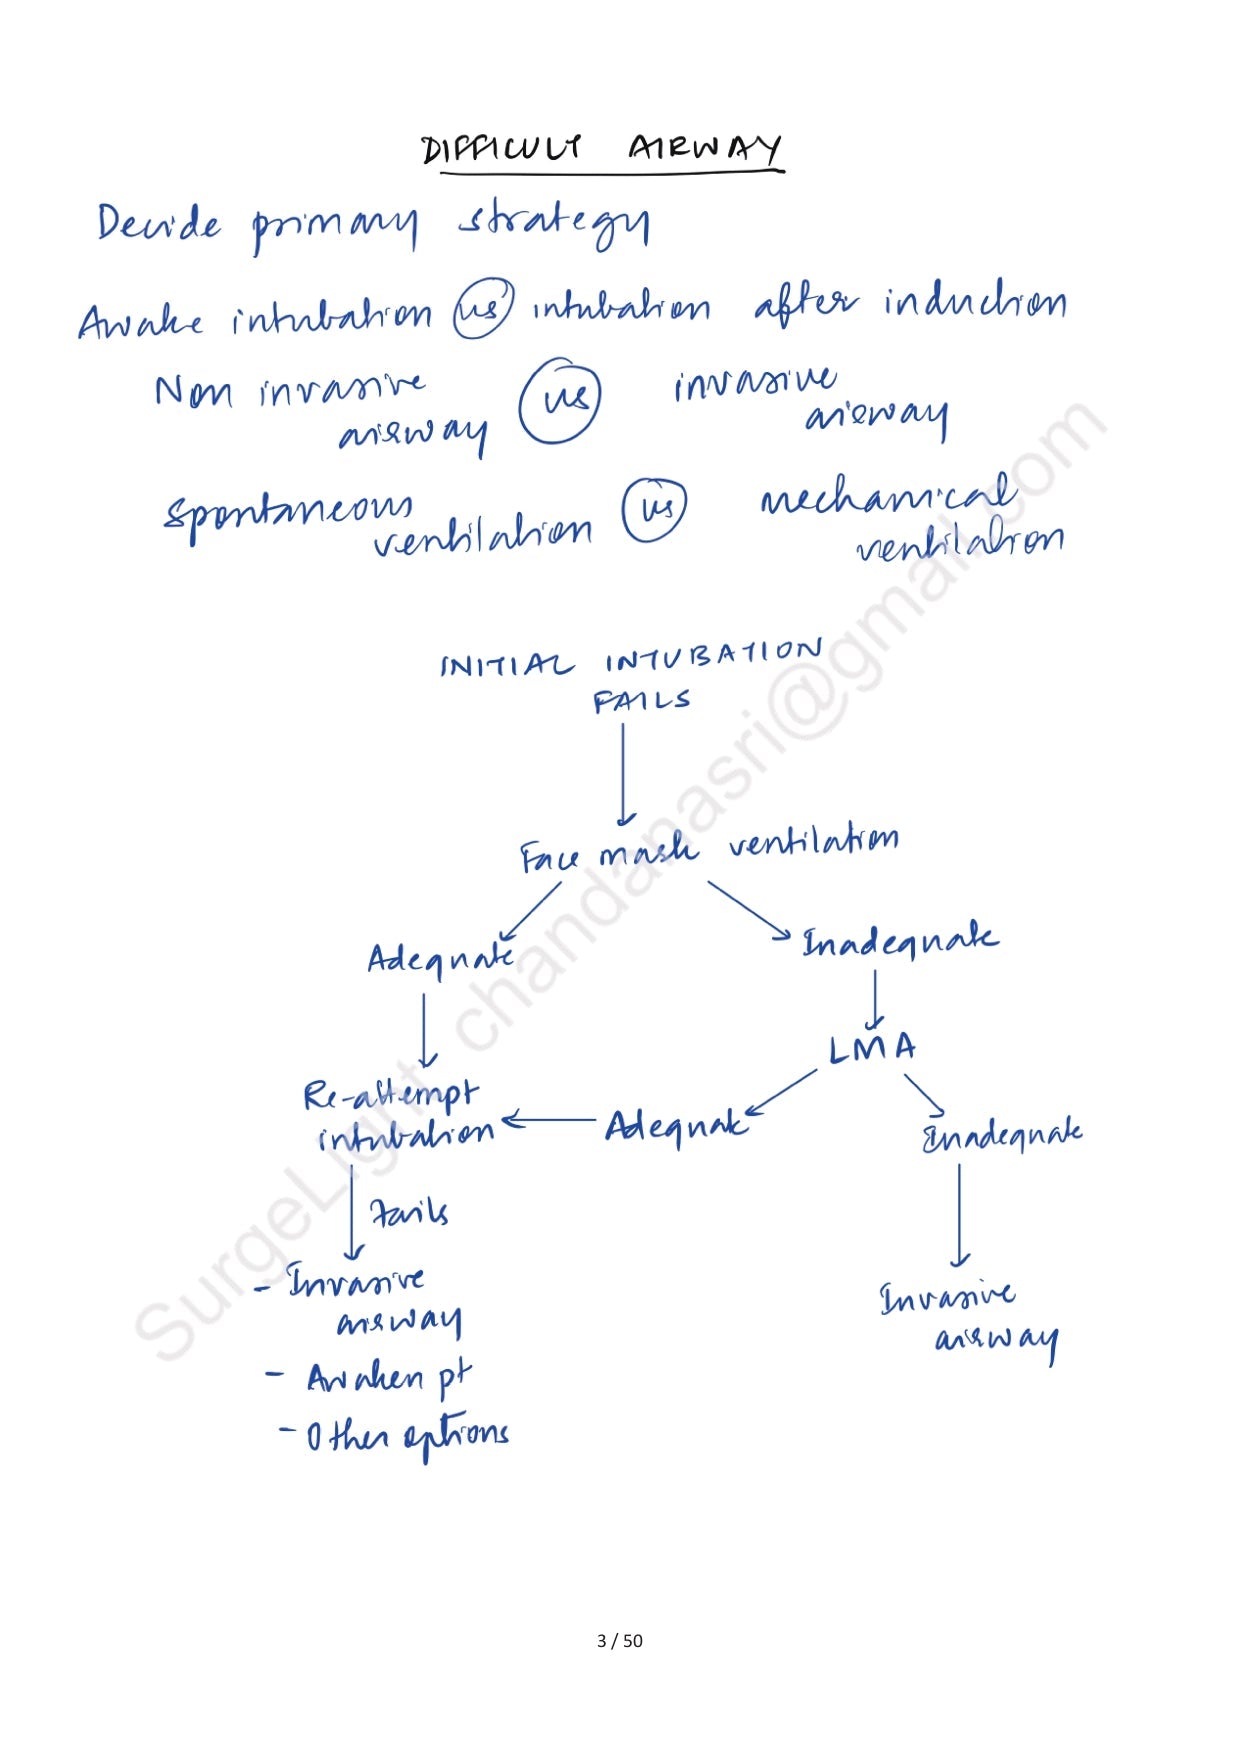 DIFFICULT AIRWAY
Decide primary strategy
Awake intubation vs intubation after induction
Non invasive airway vs invasive airway
spontaneous ventilation vs mechanical ventilation
INITIAL INTUBATION
FAILS
Face mask ventilation
Adequate Inadequate
LMA
Re-attempt
intubation Adequate Inadequate
fails
- Invasive
airway
Invasive
airway
- Awaken pt
- Other options
SurgeLight chandanasri@gmail.com
3 / 50